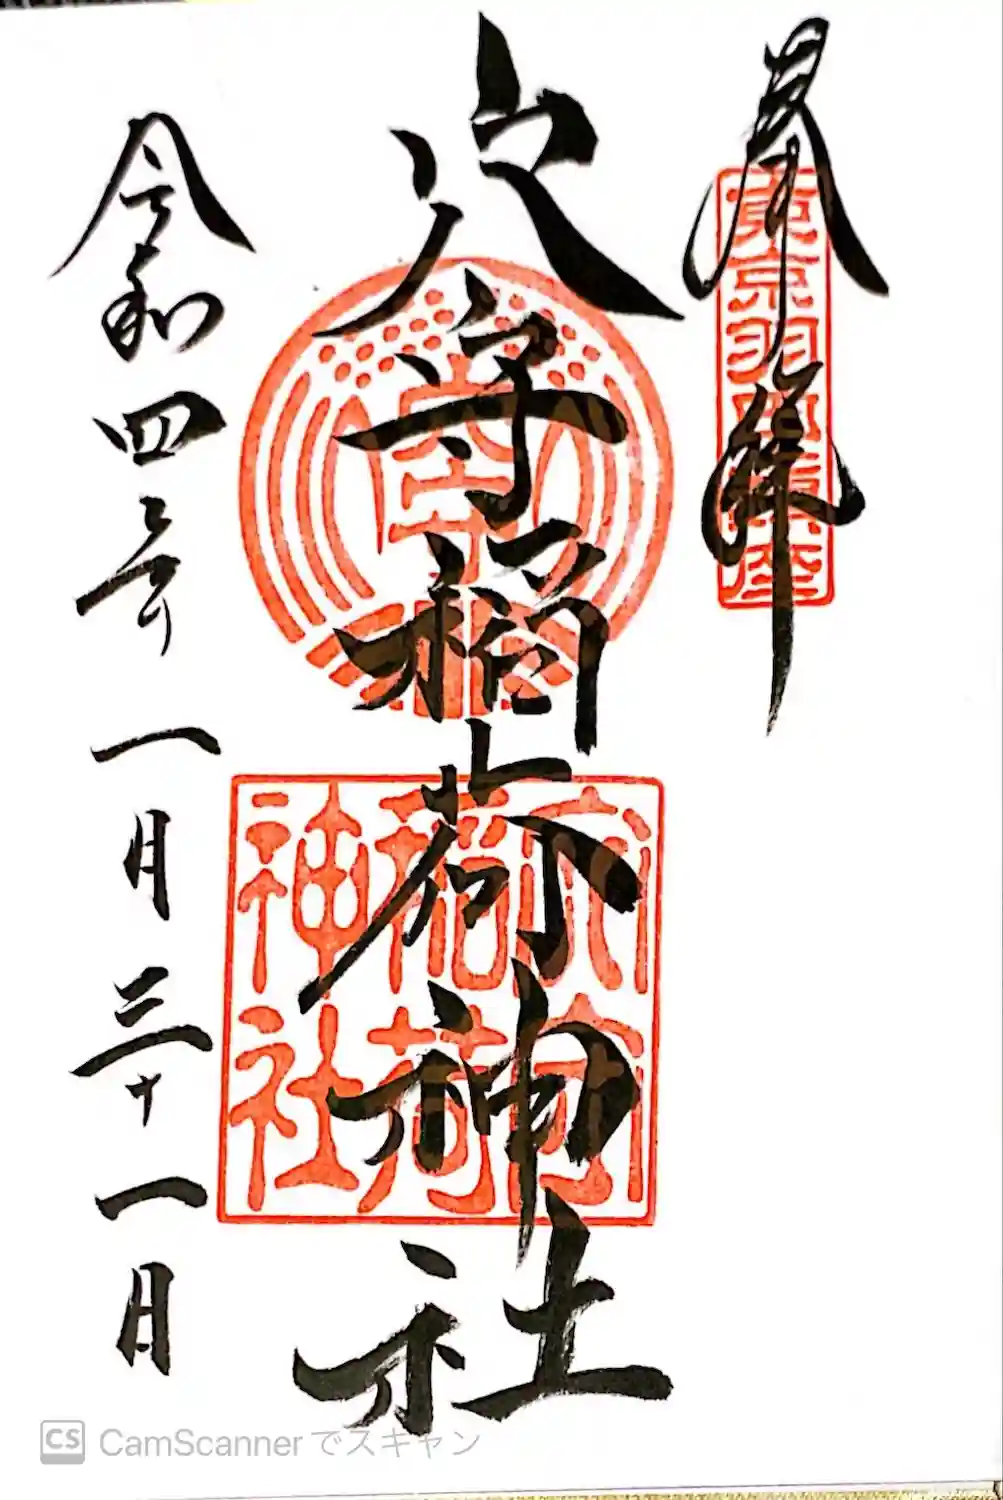 奉拝
東京羽田鎮座
穴守稲荷神社
穴守
稲荷
神社
令和四年一月三十一日
CS CamScanner でスキャン